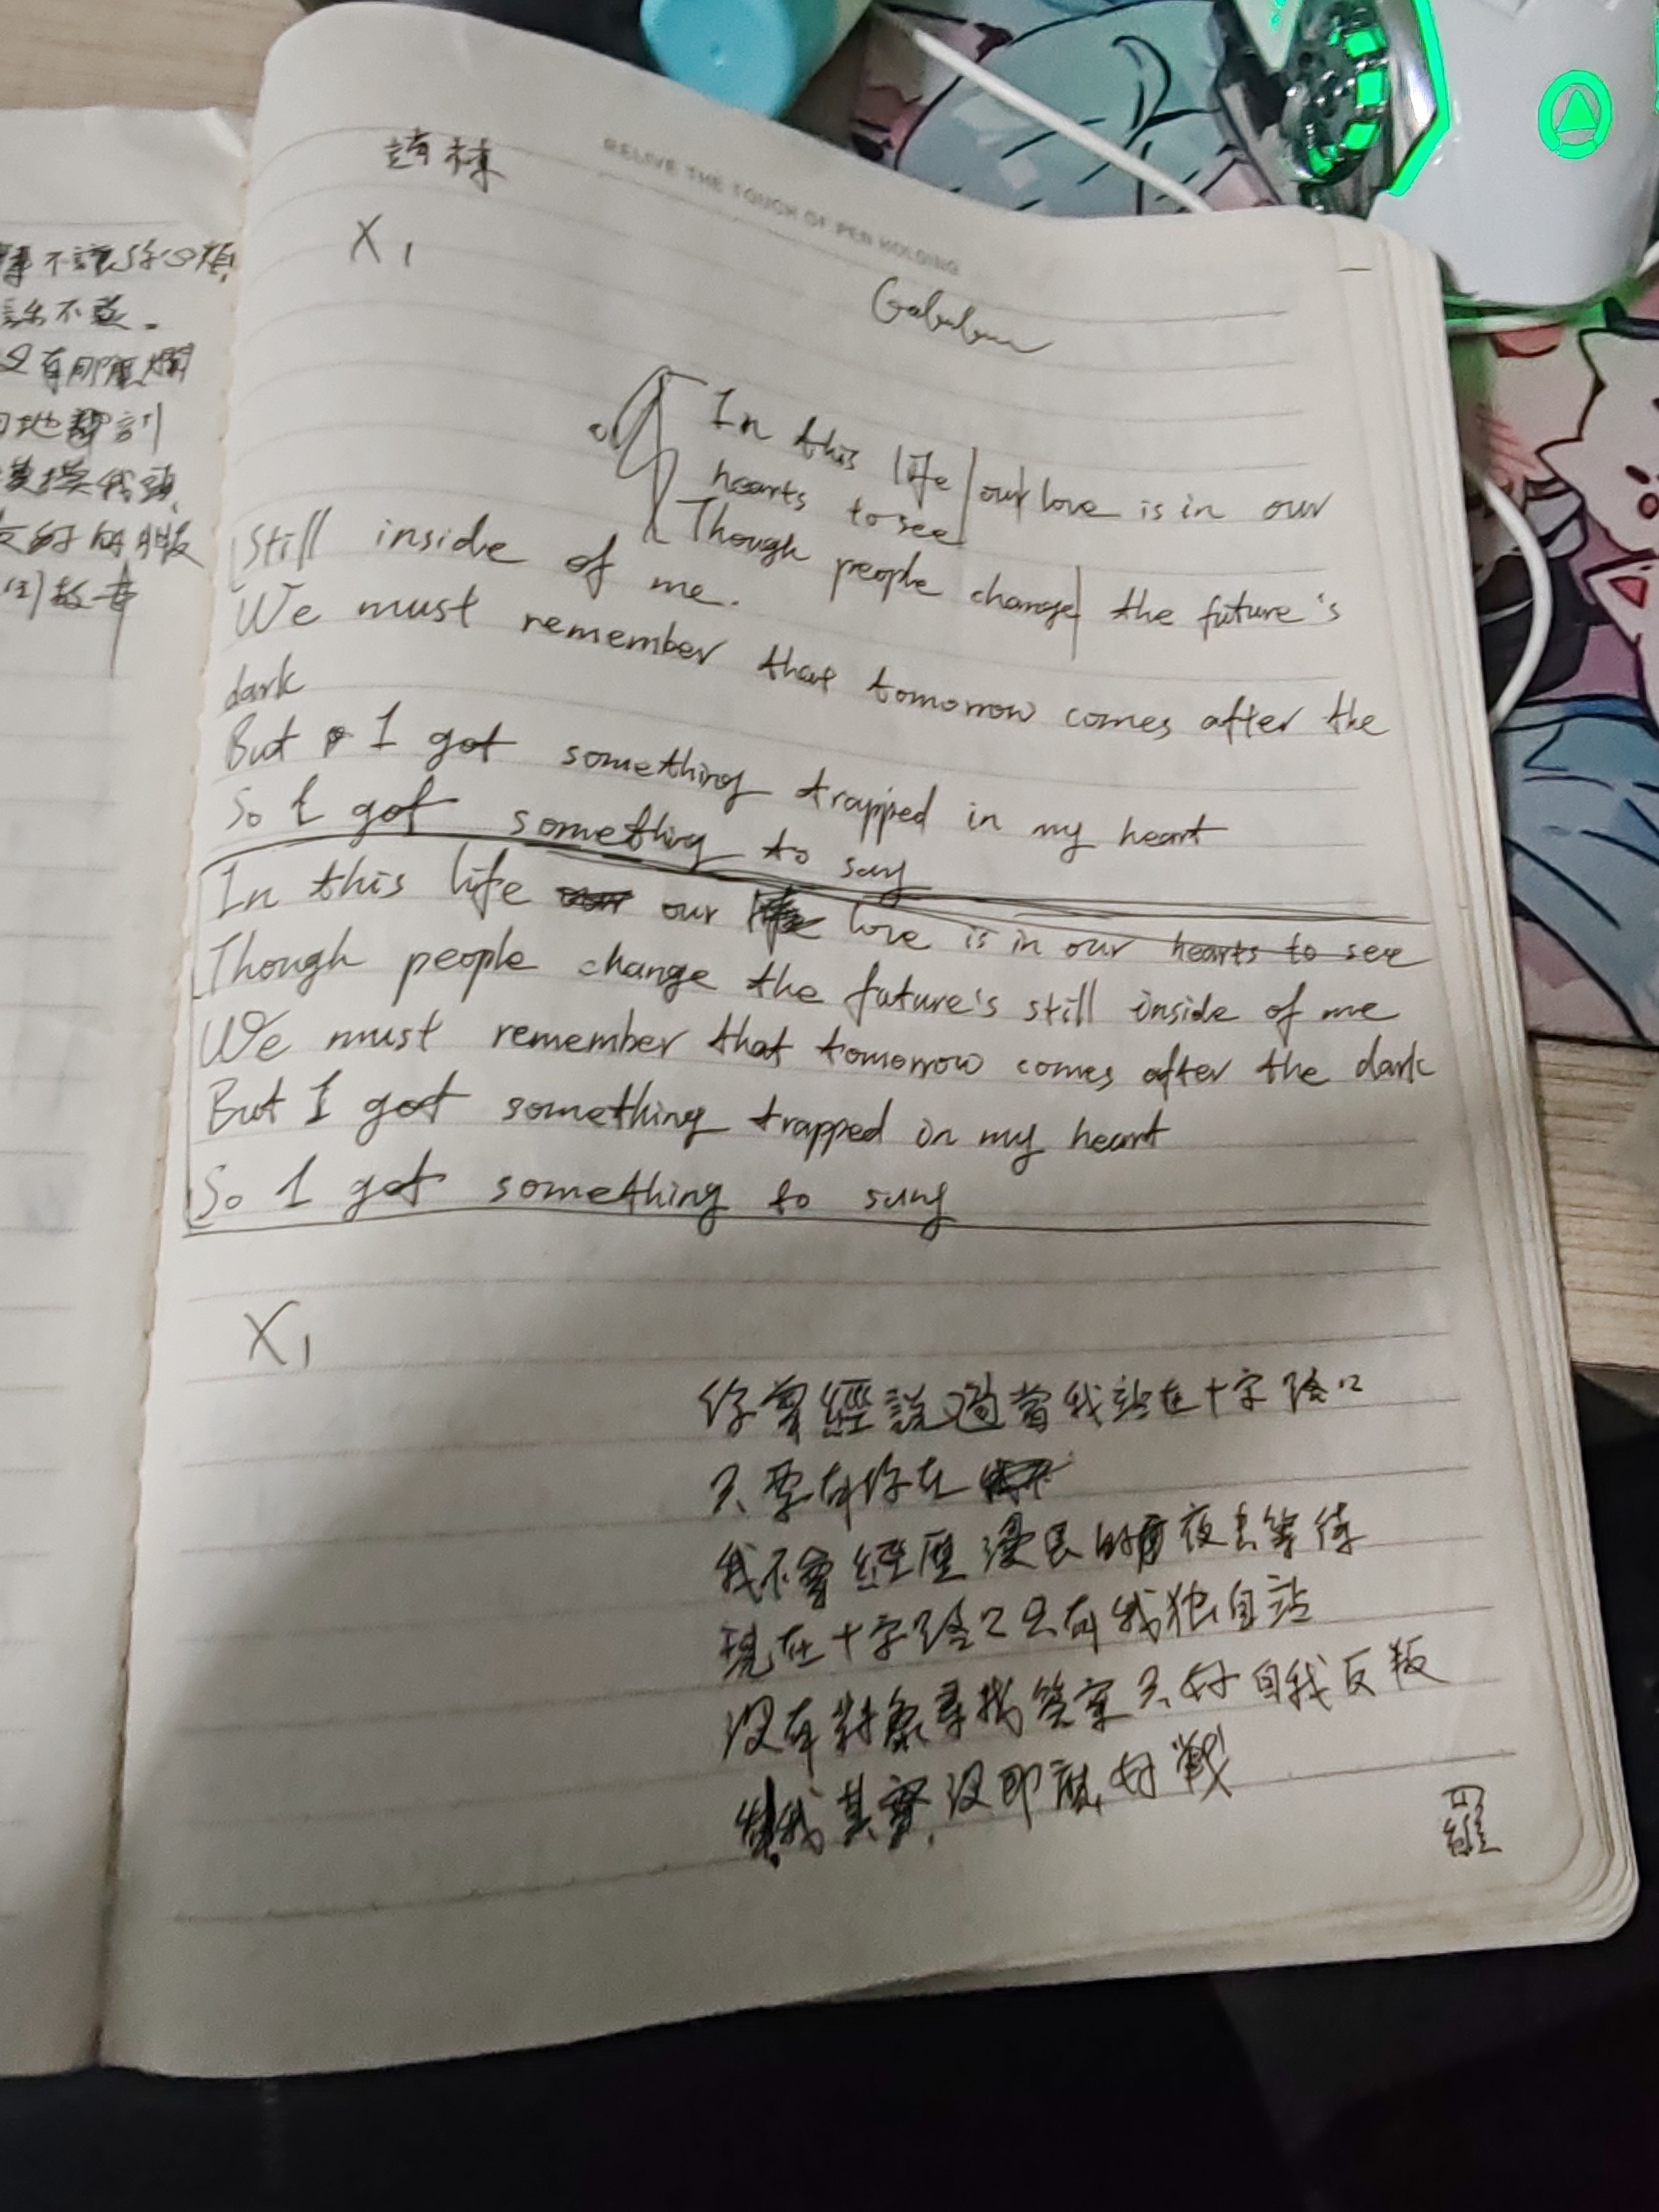 事不讓你心煩
話不並。
又有那麼爛
我頭
故事
RELIVE THE TOUCH OF PEN HOLDING
X1
In this life our love is in our
hearts to see
Though people change the future's
Still inside of me.
We must remember that tomorrow comes after the
dark
But I got something trapped in my heart
So I got something to say
In this life our love is in our hearts to see
Though people change the future's still inside of me
We must remember that tomorrow comes after the dark
But I got something trapped in my heart
So I got something to say
X1
你曾經說過當我站在十字路口
只要有你在
我不會經歷漫長的夜去等待
現在十字路口只有我独自站
沒有對象尋找答案只好自我反叛
我其實沒那麼好戰
羅